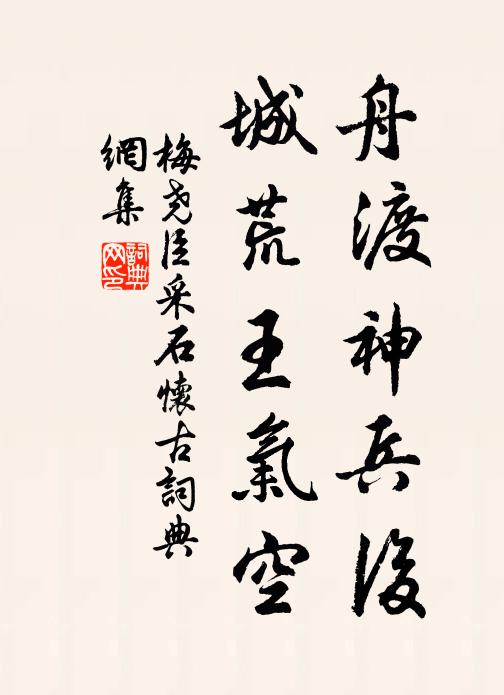 舟渡神兵後
城荒王氣空
梅尧臣采石懷古詞典
網集
詞典
网印